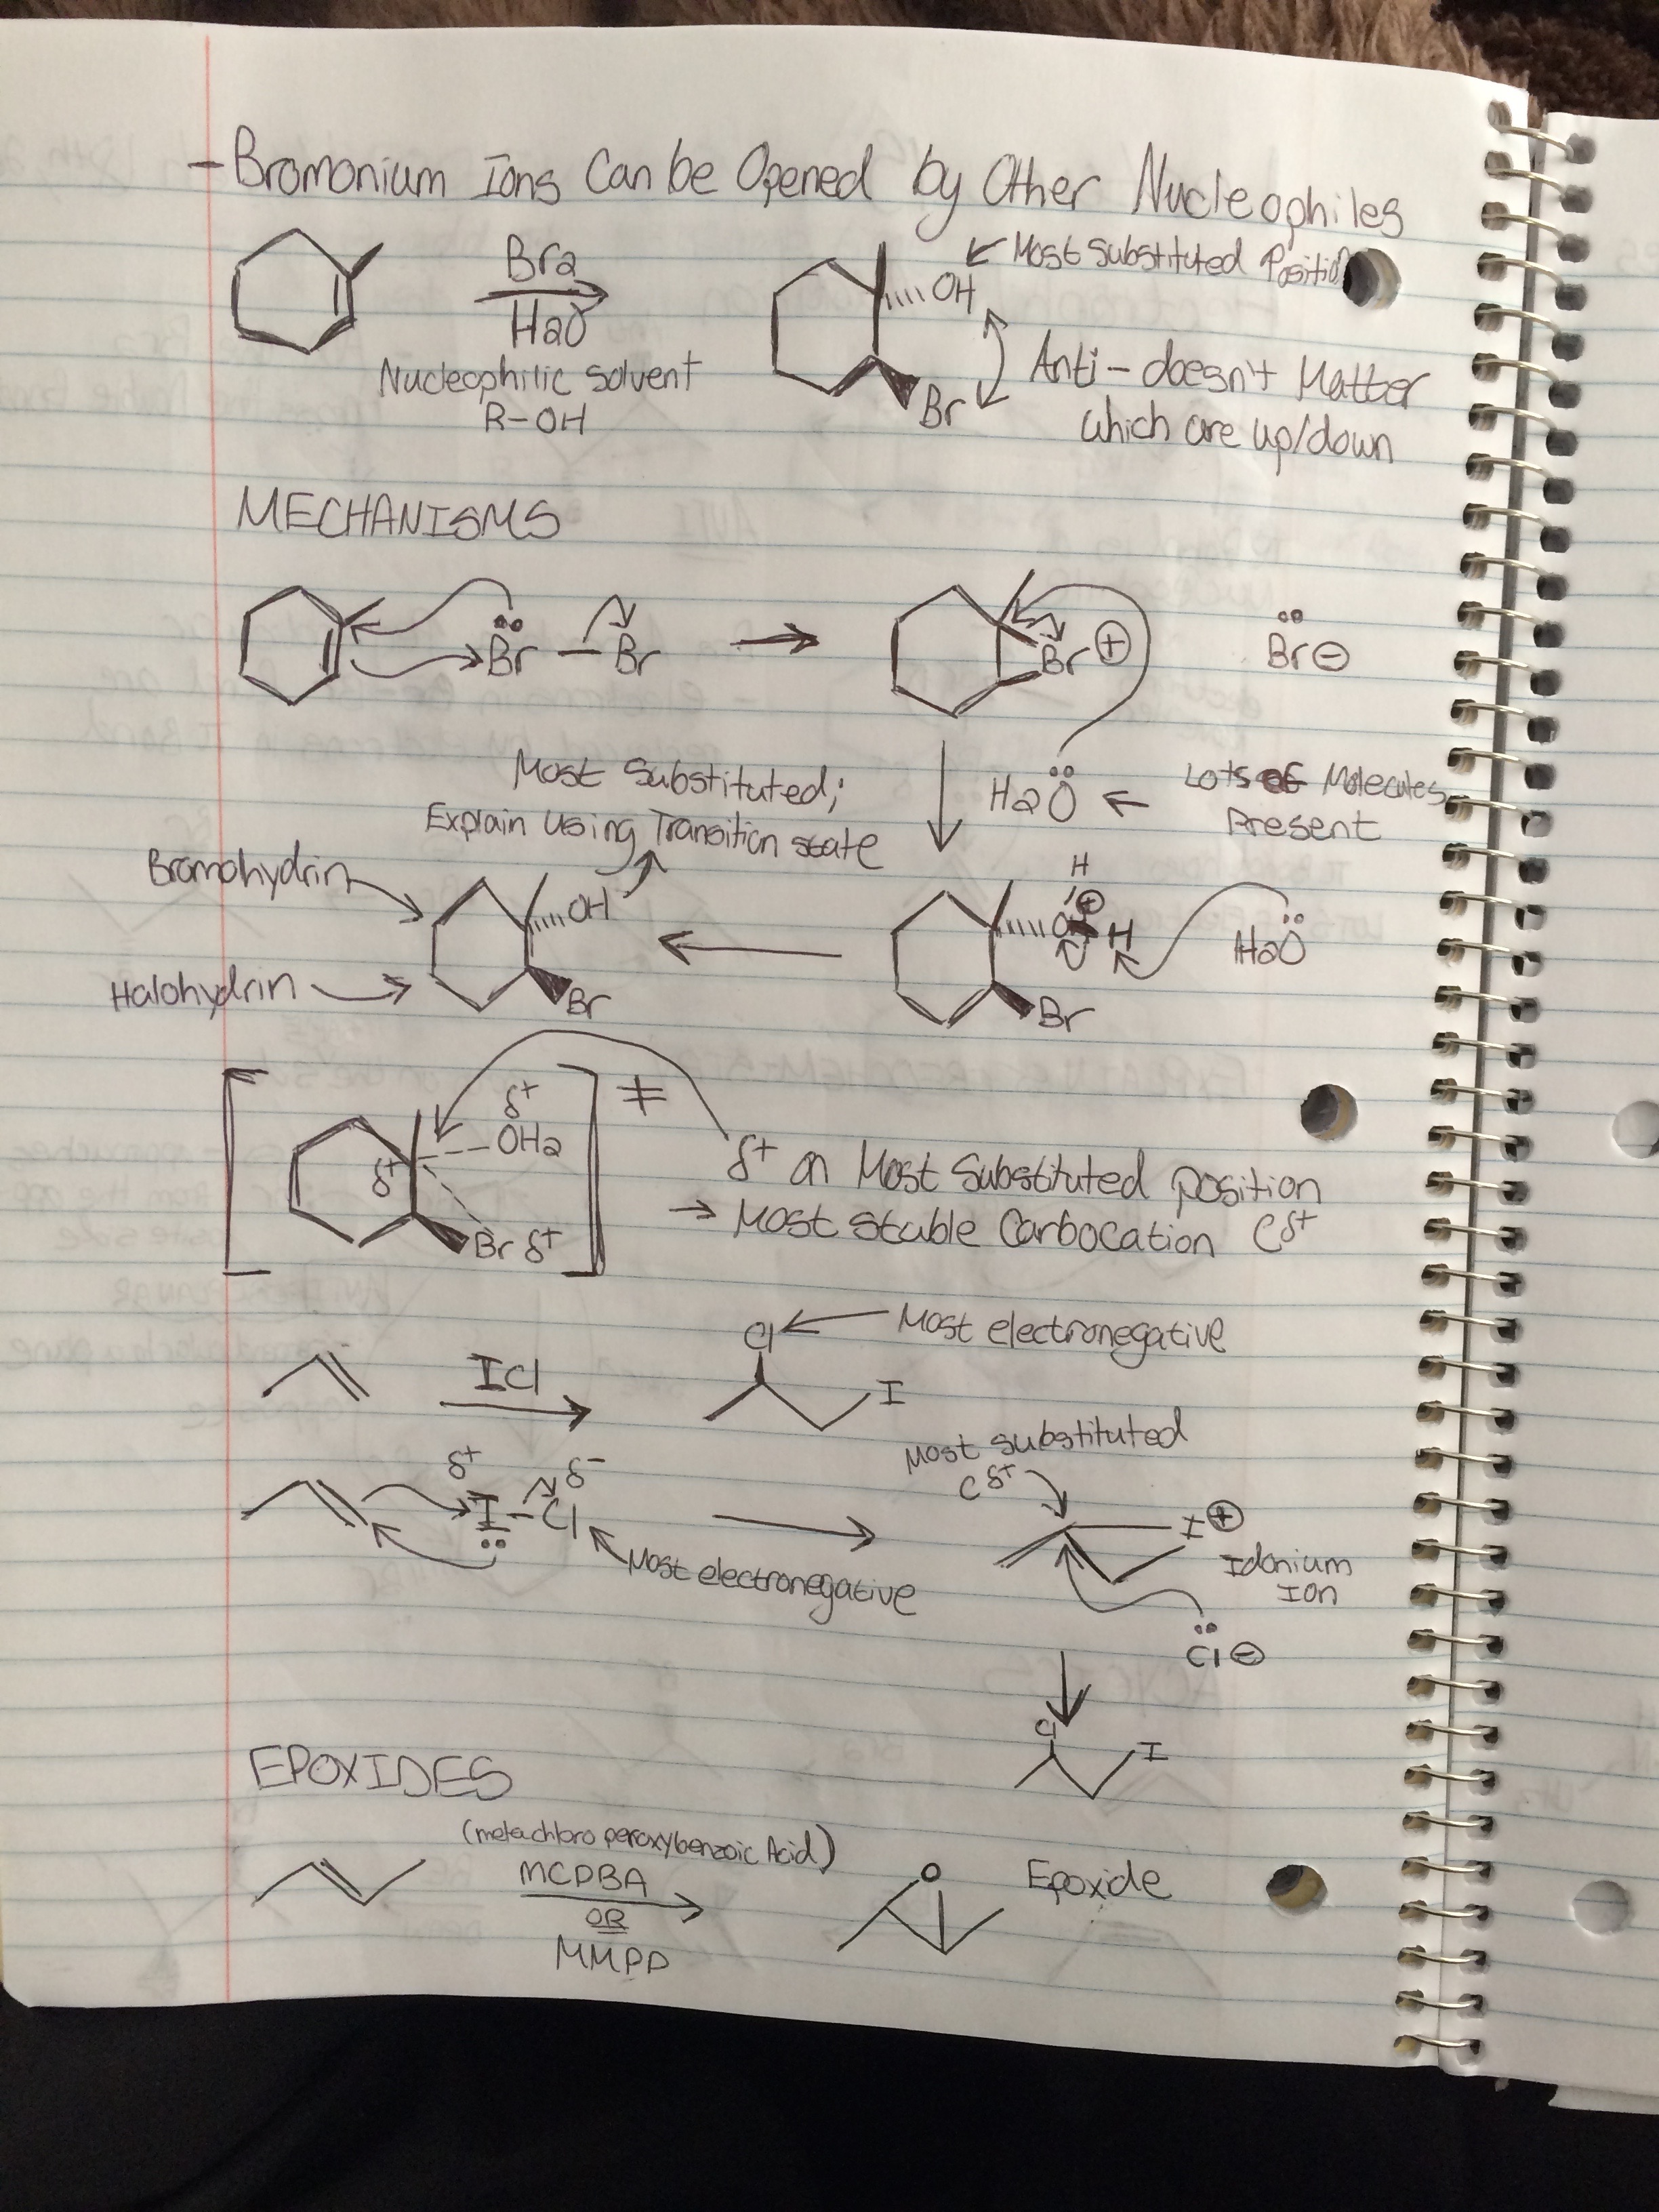 - Bromonium Ions Can be Opened by Other Nucleophiles
Br2
H2O
Nucleophilic Solvent
R-OH
OH
Br
← Most Substituted Position
Anti - doesn't Matter
which are up/down
MECHANISMS
Br — Br
Br ⊕
Br ⊖
H2O
← Lots of Molecules
Present
Most Substituted;
Explain Using Transition state
Bromohydrin
Halohydrin
OH
Br
H
⊕
H
Br
H2O
δ+
OH2
δ+
Br δ+
≠
δ+ on Most Substituted position
→ Most Stable Carbocation Cδ+
ICl
Cl
I
Most electronegative
δ+
δ-
I-Cl
Most electronegative
Most substituted
Cδ+
I⊕
Idonium
Ion
Cl⊖
Cl
I
EPOXIDES
(metachloro peroxybenzoic Acid)
MCPBA
OR
MMPP
O
Epoxide